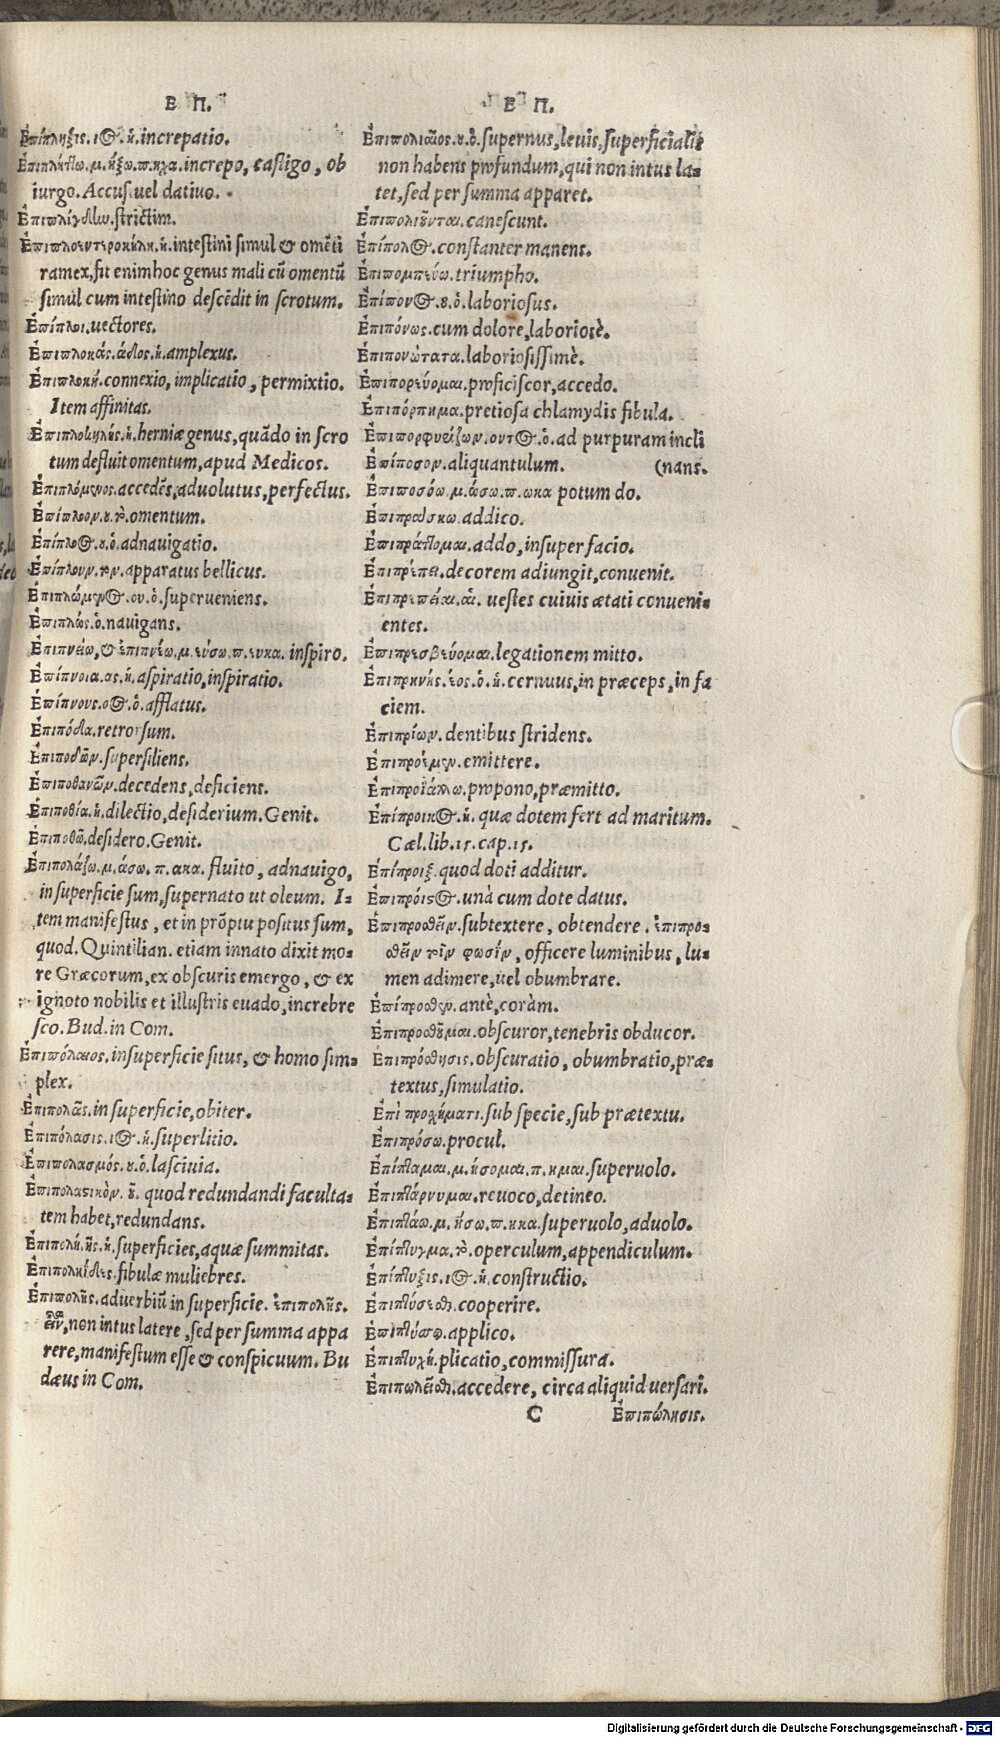 Ε Π.
Ἐπίπληξις.ιος.ἡ.increpatio.
Ἐπιπλήττω.μ.ήξω.π.ηχα.increpo, castigo, ob
iurgo. Accus. uel datiuo.
Ἐπιπλίγδην.strictim.
Ἐπιπλοεντεροκήλη.ἡ.intestini simul & omēti
ramex, fit enim hoc genus mali cū omentū
simul cum intestino descēdit in scrotum.
Ἐπίπλοι.uectores.
Ἐπιπλοκάς.άδος.ἡ.amplexus.
Ἐπιπλοκή.connexio, implicatio, permixtio.
Item affinitas.
Ἐπιπλοκηλής.ἡ.herniæ genus, quādo in scro
tum defluit omentum, apud Medicos.
Ἐπιπλόμενος.accedēs, aduolutus, perfectus.
Ἐπίπλοον.ου.τὸ.omentum.
Ἐπίπλοος.ου.ὁ.adnauigatio.
Ἐπίπλουν.τὸν.apparatus bellicus.
Ἐπιπλώμενος.ου.ὁ.superueniens.
Ἐπιπλώς.ὁ.nauigans.
Ἐπιπνείω, & ἐπιπνέω.μ.εύσω.π.ευκα. inspiro.
Ἐπίπνοια.ας.ἡ.aspiratio, inspiratio.
Ἐπίπνους.οος.ὁ.afflatus.
Ἐπιπόδα.retrorsum.
Ἐπιποδῶν.supersiliens.
Ἐπιποθανῶν.decedens, deficiens.
Ἐπιποθία.ἡ.dilectio, desiderium. Genit.
Ἐπιποθῶ.desidero. Genit.
Ἐπιπολάζω.μ.άσω.π.ακα. fluito, adnauigo,
in superficie sum, supernato ut oleum. I-
tem manifestus, et in prōptu positus sum,
quod. Quintilian. etiam innato dixit mo-
re Græcorum, ex obscuris emergo, & ex
ignoto nobilis et illustris euado, increbre
sco. Bud. in Com.
Ἐπιπόλαιος.in superficie situs, & homo sim-
plex.
Ἐπιπολᾶς.in superficie, obiter.
Ἐπιπόλασις.ιος.ἡ.superlitio.
Ἐπιπολασμός.ου.ὁ.lasciuia.
Ἐπιπολαστικὸν.οῦ. quod redundandi faculta-
tem habet, redundans.
Ἐπιπολή.ῆς.ἡ.superficies, aquæ summitas.
Ἐπιπολκίδες.fibulæ muliebres.
Ἐπιπολῆς.aduerbiū in superficie. ἐπιπολῆς.
εἶναι, non intus latere, sed per summa appa
rere, manifestum esse & conspicuum. Bu
dæus in Com.
Ε Π.
Ἐπιπολιαῖος.ου.ὁ.supernus, leuis, superficialis
non habens profundum, qui non intus la-
tet, sed per summa apparet.
Ἐπιπολιοῦνται.canescunt.
Ἐπίπολος.constanter manens.
Ἐπιπομπεύω.triumpho.
Ἐπίπονος.ου.ὁ.laboriosus.
Ἐπιπόνως.cum dolore, laboriosè.
Ἐπιπονώτατα.laboriosissimè.
Ἐπιπορεύομαι.proficiscor, accedo.
Ἐπιπόρπημα.pretiosa chlamydis fibula.
Ἐπιπορφυείζων.οντος.ὁ. ad purpuram incli
Ἐπίποσον.aliquantulum. (nans.
Ἐπιποσόω.μ.ώσω.π.ωκα potum do.
Ἐπιπράσκω.addico.
Ἐπιπράττομαι.addo, insuper facio.
Ἐπιπρέπει.decorem adiungit, conuenit.
Ἐπιπρεπεῖαι.αἱ. uestes cuiuis ætati conueni-
entes.
Ἐπιπρεσβεύομαι.legationem mitto.
Ἐπιπρηνής.έος.ὁ.ἡ.cernuus, in præceps, in fa
ciem.
Ἐπιπρίων.dentibus stridens.
Ἐπιπροέμεν.emittere.
Ἐπιπροϊάλλω.propono, præmitto.
Ἐπίπροικος.ἡ. quæ dotem fert ad maritum.
Cæl. lib. 15. cap. 15.
Ἐπίπροιξ.quod doti additur.
Ἐπιπρόιστος.unà cum dote datus.
Ἐπιπροσθεῖν.subtextere, obtendere. ἐπιπρο-
σθεῖν τὴν φωσὶν, officere luminibus, lu-
men adimere, uel obumbrare.
Ἐπίπροσθεν.antè, coràm.
Ἐπιπροσθοῦμαι.obscuror, tenebris obducor.
Ἐπιπρόσθησις.obscuratio, obumbratio, præ-
textus, simulatio.
Ἐπὶ προσχήματι.sub specie, sub prætextu.
Ἐπιπρόσω.procul.
Ἐπίπταμαι.μ.ήσομαι.π.ημαι.superuolo.
Ἐπιπτάρνυμαι.reuoco, detineo.
Ἐπιπτάω.μ.ήσω.π.ηκα.superuolo, aduolo.
Ἐπίπτυγμα.τὸ.operculum, appendiculum.
Ἐπίπτυξις.ιος.ἡ.constructio.
Ἐπιπτύσεσθαι.cooperire.
Ἐπιπτύσσω.applico.
Ἐπιπτυχή.plicatio, commissura.
Ἐπιπωλεῖσθαι.accedere, circa aliquid uersari.
C Ἐπιπώλησις.
Digitalisierung gefördert durch die Deutsche Forschungsgemeinschaft - DFG